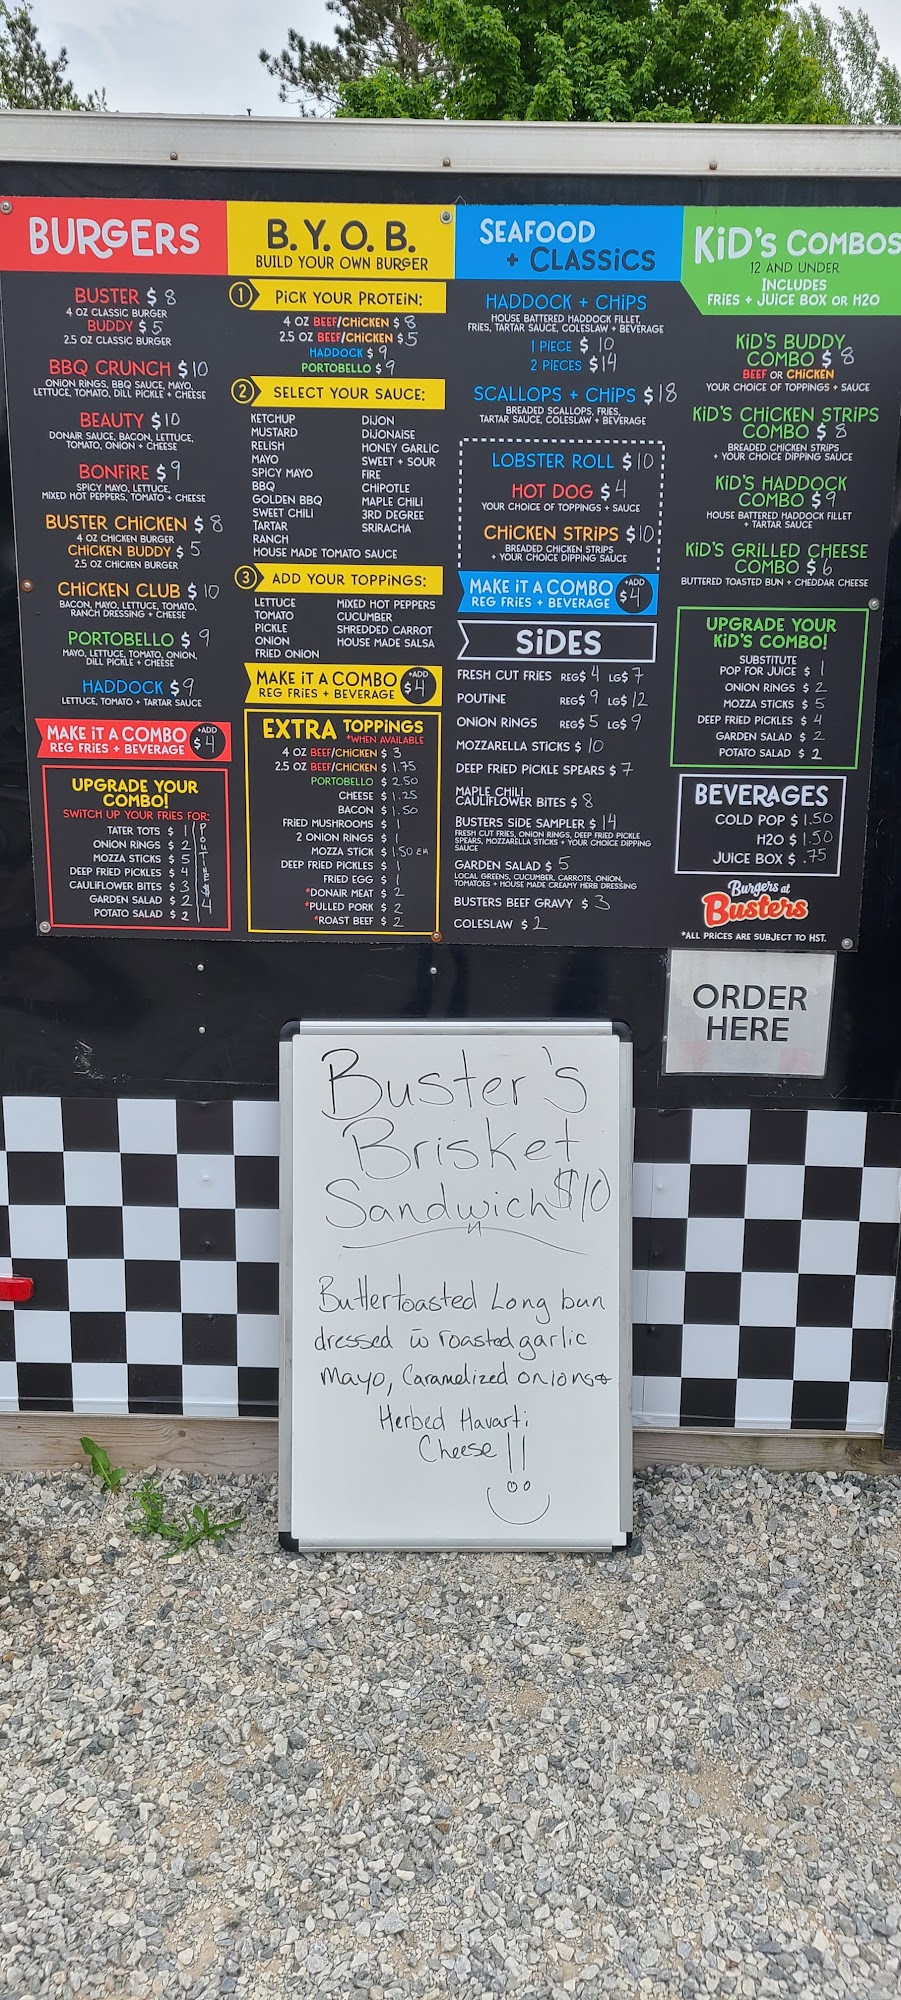 BURGERS
BUSTER $ 8
4 OZ CLASSIC BURGER
BUDDY $ 5
2.5 OZ CLASSIC BURGER
BBQ CRUNCH $ 10
ONION RINGS, BBQ SAUCE, MAYO,
LETTUCE, TOMATO, DILL PICKLE + CHEESE
BEAUTY $ 10
DONAIR SAUCE, BACON, LETTUCE,
TOMATO, ONION + CHEESE
BONFIRE $ 9
SPICY MAYO, LETTUCE,
MIXED HOT PEPPERS, TOMATO + CHEESE
BUSTER CHICKEN $ 8
4 OZ CHICKEN BURGER
CHICKEN BUDDY $ 5
2.5 OZ CHICKEN BURGER
CHICKEN CLUB $ 10
BACON, MAYO, LETTUCE, TOMATO,
RANCH DRESSING + CHEESE
PORTOBELLO $ 9
MAYO, LETTUCE, TOMATO, ONION,
DILL PICKLE + CHEESE
HADDOCK $ 9
LETTUCE, TOMATO + TARTAR SAUCE
MAKE IT A COMBO
REG FRIES + BEVERAGE
+ADD
$ 4
UPGRADE YOUR
COMBO!
SWITCH UP YOUR FRIES FOR:
TATER TOTS $ 1
ONION RINGS $ 2
MOZZA STICKS $ 5
DEEP FRIED PICKLES $ 4
CAULIFLOWER BITES $ 3
GARDEN SALAD $ 2
POTATO SALAD $ 2
POUTINE $ 4
B. Y. O. B.
BUILD YOUR OWN BURGER
1 PICK YOUR PROTEIN:
4 OZ BEEF/CHICKEN $ 8
2.5 OZ BEEF/CHICKEN $ 5
HADDOCK $ 9
PORTOBELLO $ 9
2 SELECT YOUR SAUCE:
KETCHUP
MUSTARD
RELISH
MAYO
SPICY MAYO
BBQ
GOLDEN BBQ
SWEET CHILI
TARTAR
RANCH
HOUSE MADE TOMATO SAUCE
DIJON
DIJONAISE
HONEY GARLIC
SWEET + SOUR
FIRE
CHIPOTLE
MAPLE CHILI
3RD DEGREE
SRIRACHA
3 ADD YOUR TOPPINGS:
LETTUCE
TOMATO
PICKLE
ONION
FRIED ONION
MIXED HOT PEPPERS
CUCUMBER
SHREDDED CARROT
HOUSE MADE SALSA
MAKE IT A COMBO
REG FRIES + BEVERAGE
+ADD
$ 4
EXTRA TOPPINGS
*WHEN AVAILABLE
4 OZ BEEF/CHICKEN $ 3
2.5 OZ BEEF/CHICKEN $ 1.75
PORTOBELLO $ 2.50
CHEESE $ 1.25
BACON $ 1.50
FRIED MUSHROOMS $ 1
2 ONION RINGS $ 1
MOZZA STICK $ 1.50 EA
DEEP FRIED PICKLES $ 1
FRIED EGG $ 1
*DONAIR MEAT $ 2
*PULLED PORK $ 2
*ROAST BEEF $ 2
SEAFOOD
+ CLASSICS
HADDOCK + CHIPS
HOUSE BATTERED HADDOCK FILLET,
FRIES, TARTAR SAUCE, COLESLAW + BEVERAGE
1 PIECE $ 10
2 PIECES $ 14
SCALLOPS + CHIPS $ 18
BREADED SCALLOPS, FRIES,
TARTAR SAUCE, COLESLAW + BEVERAGE
LOBSTER ROLL $ 10
HOT DOG $ 4
YOUR CHOICE OF TOPPINGS + SAUCE
CHICKEN STRIPS $ 10
BREADED CHICKEN STRIPS
+ YOUR CHOICE DIPPING SAUCE
MAKE IT A COMBO
REG FRIES + BEVERAGE
+ADD
$ 4
SIDES
FRESH CUT FRIES REG $ 4 LG $ 7
POUTINE REG $ 9 LG $ 12
ONION RINGS REG $ 5 LG $ 9
MOZZARELLA STICKS $ 10
DEEP FRIED PICKLE SPEARS $ 7
MAPLE CHILI
CAULIFLOWER BITES $ 8
BUSTERS SIDE SAMPLER $ 14
FRESH CUT FRIES, ONION RINGS, DEEP FRIED PICKLE
SPEARS, MOZZARELLA STICKS + YOUR CHOICE DIPPING
SAUCE
GARDEN SALAD $ 5
LOCAL GREENS, CUCUMBER, CARROTS, ONION,
TOMATOES + HOUSE MADE CREAMY HERB DRESSING
BUSTERS BEEF GRAVY $ 3
COLESLAW $ 2
KID'S COMBOS
12 AND UNDER
INCLUDES
FRIES + JUICE BOX OR H2O
KID'S BUDDY
COMBO $ 8
BEEF OR CHICKEN
YOUR CHOICE OF TOPPINGS + SAUCE
KID'S CHICKEN STRIPS
COMBO $ 8
BREADED CHICKEN STRIPS
+ YOUR CHOICE DIPPING SAUCE
KID'S HADDOCK
COMBO $ 9
HOUSE BATTERED HADDOCK FILLET
+ TARTAR SAUCE
KID'S GRILLED CHEESE
COMBO $ 6
BUTTERED TOASTED BUN + CHEDDAR CHEESE
UPGRADE YOUR
KID'S COMBO!
SUBSTITUTE
POP FOR JUICE $ 1
ONION RINGS $ 2
MOZZA STICKS $ 5
DEEP FRIED PICKLES $ 4
GARDEN SALAD $ 2
POTATO SALAD $ 2
BEVERAGES
COLD POP $ 1.50
H2O $ 1.50
JUICE BOX $ .75
Burgers at
Busters
*ALL PRICES ARE SUBJECT TO HST.
ORDER
HERE
Buster's
Brisket
Sandwich $10
Buttertoasted Long bun
dressed w roasted garlic
Mayo, Caramelized onions &
Herbed Havarti
Cheese!!